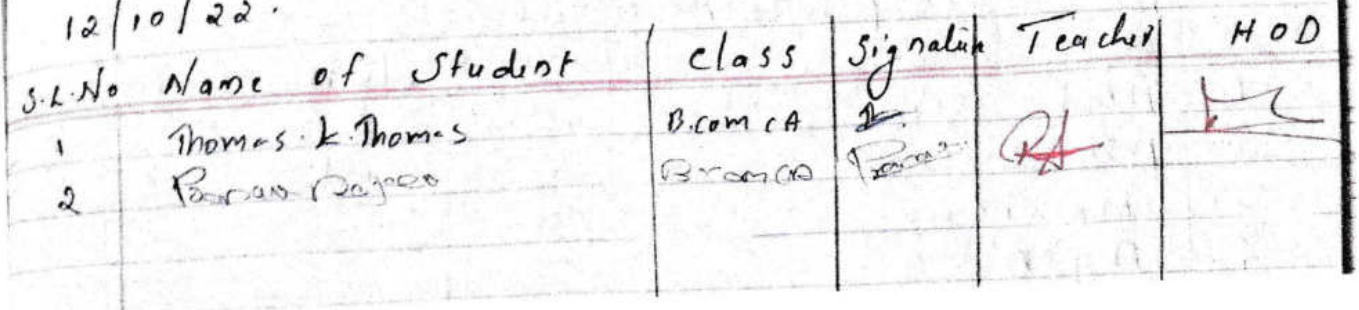 12/10/22.
S.L.No Name of Student Class Signature Teacher HOD
1 Thomas.K.Thomas B.com CA
2 B.com CA